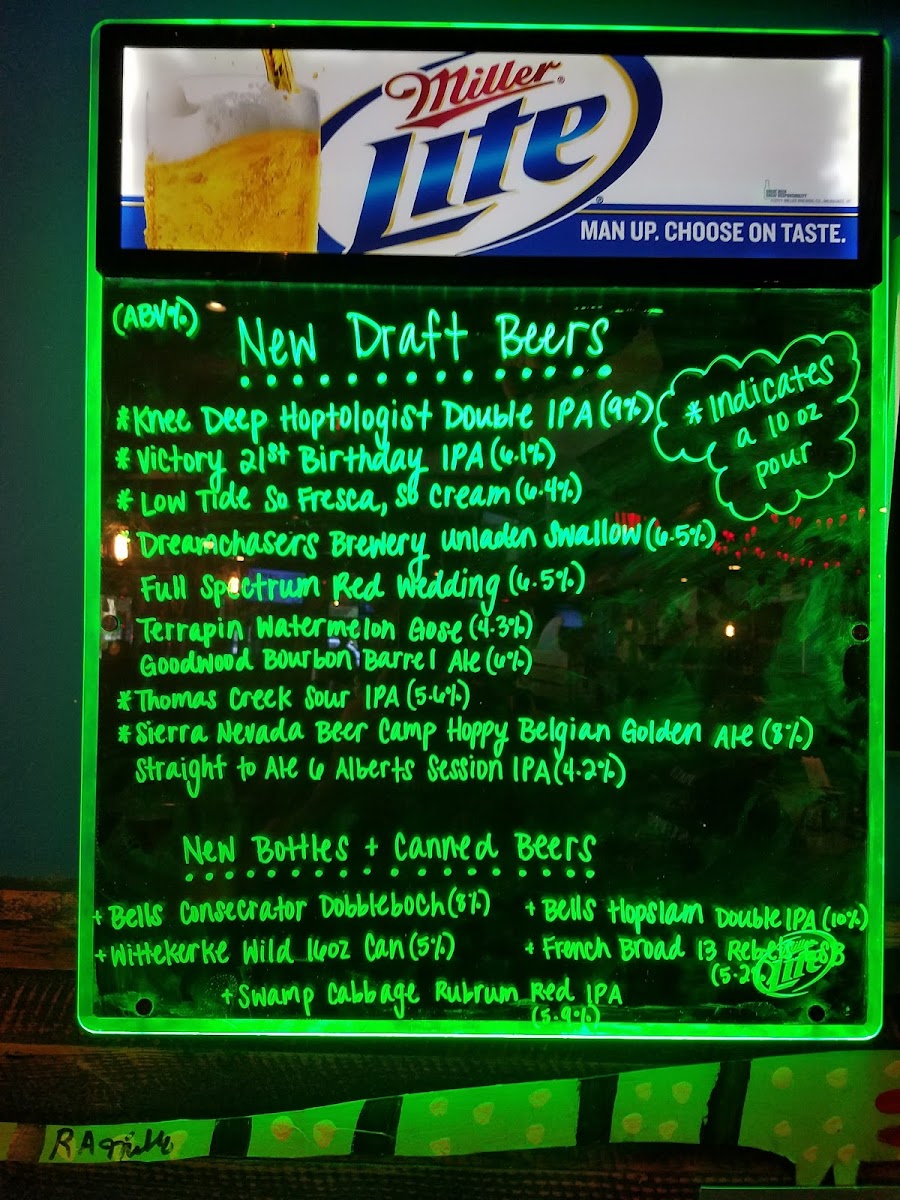 Miller
Lite
MAN UP. CHOOSE ON TASTE.
(ABV%)
New Draft Beers
*Indicates
a 10 oz
pour
*Knee Deep Hoptologist Double IPA (9%)
*Victory 21st Birthday IPA (6.1%)
*Low Tide So Fresca, So Cream (6.4%)
*Dreamchasers Brewery Unladen Swallow (6.5%)
Full Spectrum Red Wedding (6.5%)
Terrapin Watermelon Gose (4.3%)
Goodwood Bourbon Barrel Ale (6%)
*Thomas Creek Sour IPA (5.6%)
*Sierra Nevada Beer Camp Hoppy Belgian Golden Ale (8%)
Straight to Ale 6 Alberts Session IPA (4.2%)
New Bottles + Canned Beers
+ Bells Consecrator Dobbleboch (8%)
+ Bells Hopslam Double IPA (10%)
+ Wittekerke Wild 16oz Can (5%)
+ French Broad 13 
(5.2
Lite
+ Swamp Cabbage Rubrum Red IPA
(5.9%)